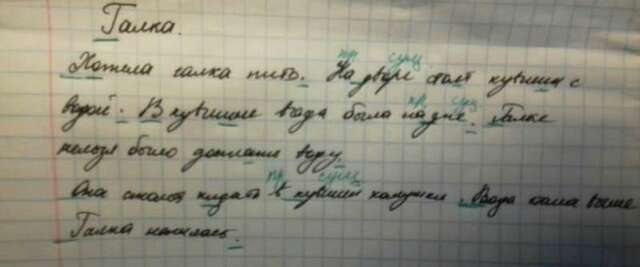 Галка.
пр сущ
Хотела галка пить. На дворе стоял кувшин с
пр сущ
водой. В кувшине вода была на дне. Галке
нельзя было достать воду.
пр сущ
Она стала кидать в кувшин камушки. Вода стала выше
Галка напилась.